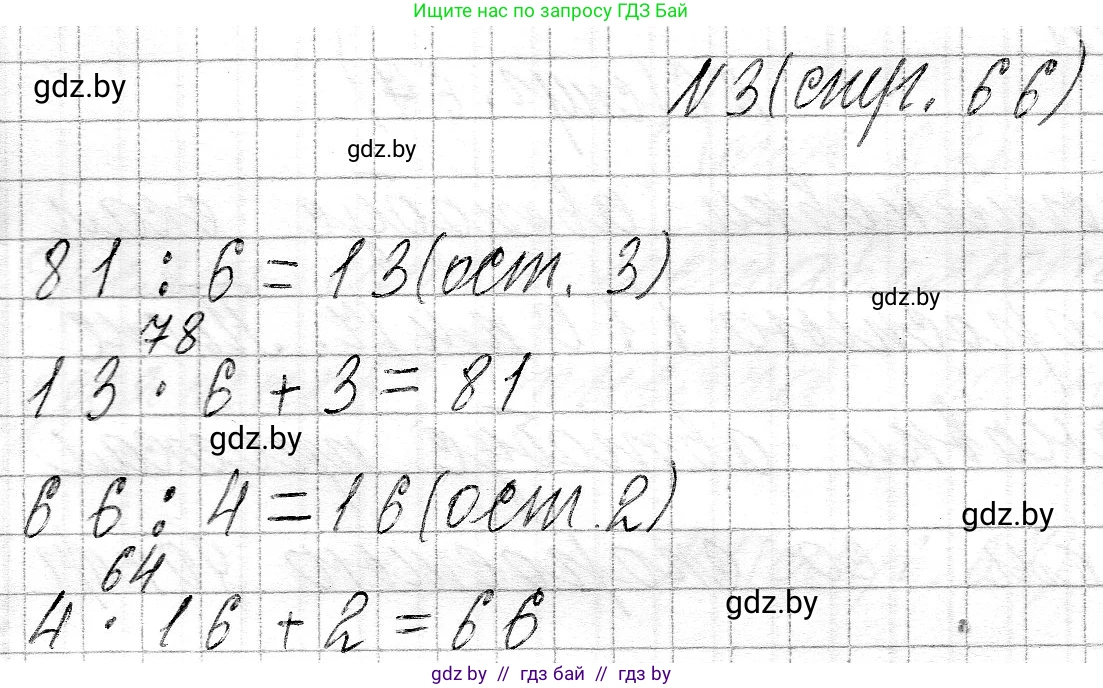 Ищите нас по запросу ГДЗ Бай
gdz.by
N3(стр. 66)
gdz.by
81 : 6 = 13(ост. 3)
gdz.by
78
13 · 6 + 3 = 81
gdz.by
66 : 4 = 16(ост. 2)
gdz.by
64
4 · 16 + 2 = 66
gdz.by
gdz.by // гдз бай // gdz.by